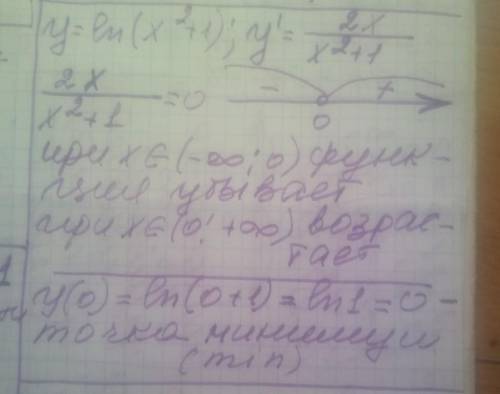 y = ln(x²+1); y' = 2x/(x²+1)
2x/(x²+1) = 0 - +
0
при x∈(-∞; 0) функ-
ция убывает
при x∈(0; +∞) возрас-
тает
y(0) = ln(0+1) = ln1 = 0 -
точка минимум
(min)
1